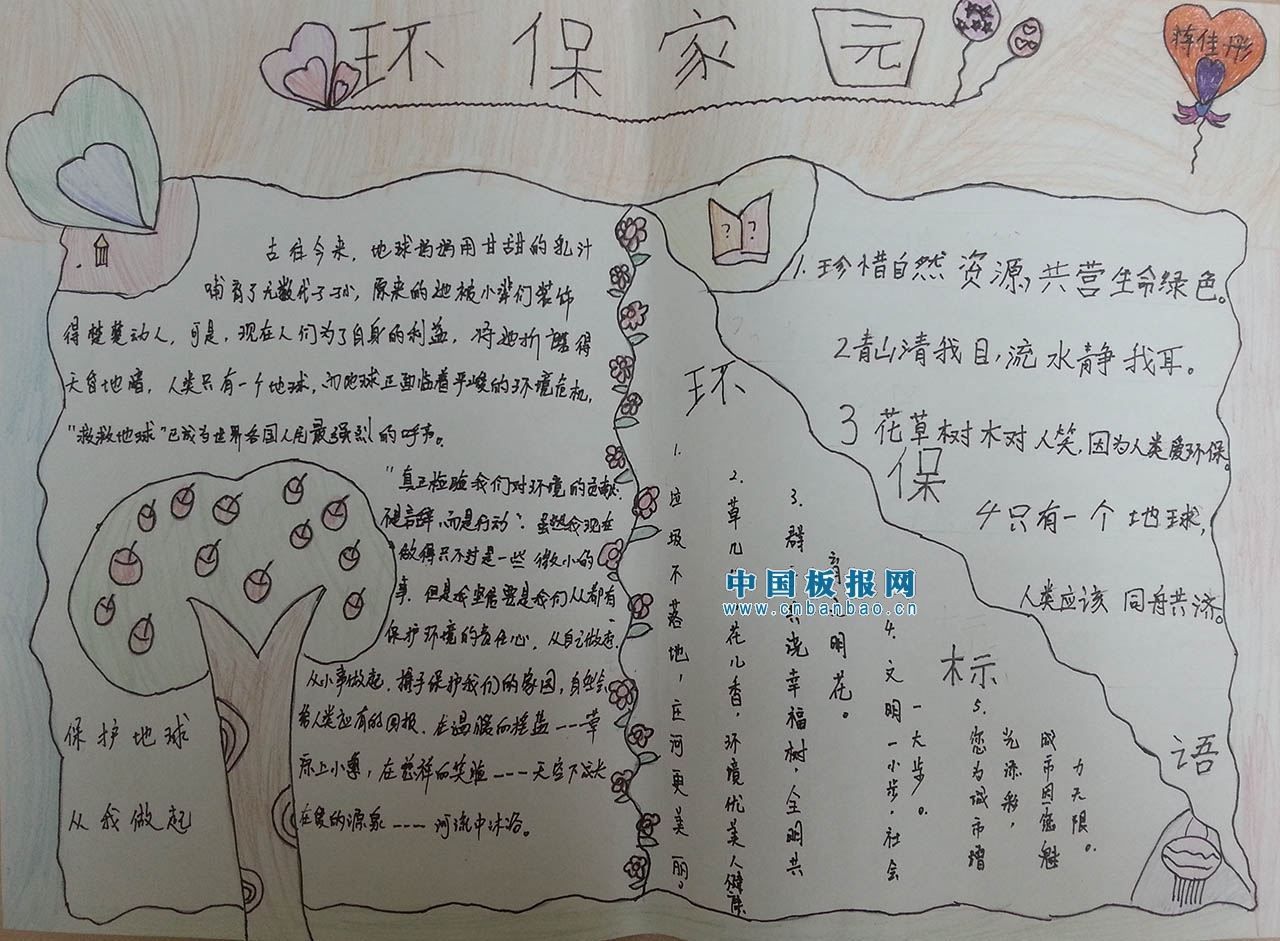 环保家园
蒋佳彤
古往今来，地球妈妈用甘甜的乳汁
哺育了无数代子孙，原来的她被小辈们装饰
得楚楚动人，可是，现在人们为了自身的利益，将她折磨得
天昏地暗，人类只有一个地球，而地球正面临着严峻的环境危机，
"救救地球"已成为世界各国人民最强烈的呼声。
"真正检验我们对环境的贡献
不是言辞，而是行动"。虽然我现在
做得只不过是一些微小的
事，但是我坚信要是我们人都有
保护环境的责任心，从自己做起，
从小事做起，携手保护我们的家园，自然会
给人类应有的回报，在温暖的摇篮----草
原上小，在慈祥的笑脸----天空下成长
在爱的源泉----河流中沐浴。
保护地球
从我做起
? ?
1.珍惜自然资源，共营生命绿色。
2青山清我目，流水静我耳。
3花草树木对人笑，因为人类爱环保。
4只有一个地球，
人类应该同舟共济。
环保标语
1.垃圾不落地，庄河更美丽。
2.草儿花儿香，环境优美人健康
3.群共浇幸福树，全明共
育文明花。
4.文明一小步，社会
一大步。
5.您为城市增
光添彩，
城市因您魅
力无限。
中国板报网
www.cnbanbao.cn